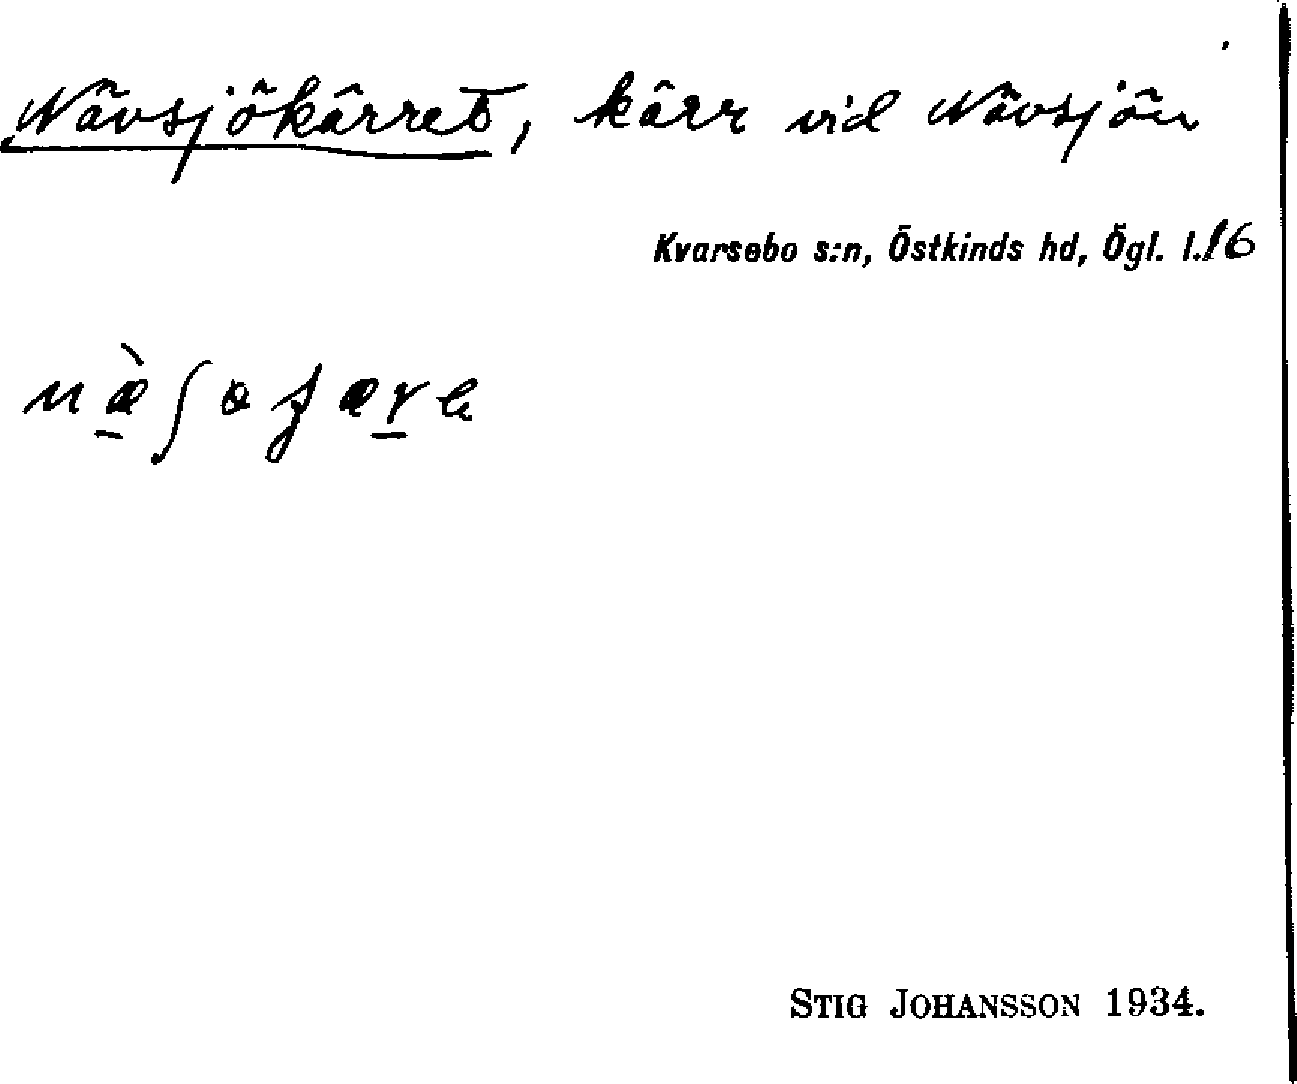 Nävsjökärret, kärr vid Nävsjön
Kvarsebo s:n, Östkinds hd, Ögl. l. 16
STIG JOHANSSON 1934.